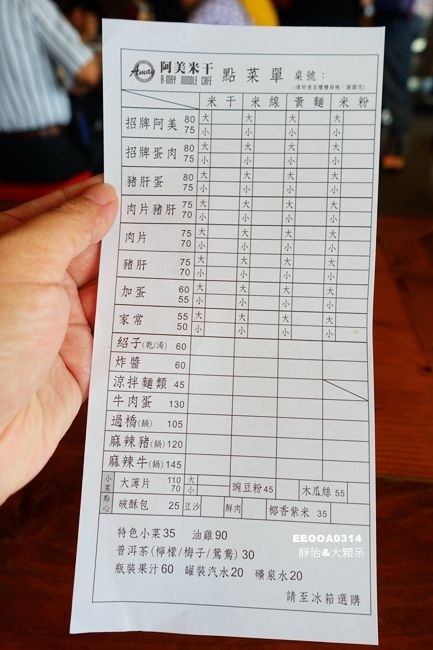 Amay 阿美米干 點菜單 桌號：
A-MAY NOODLE CAFE
米干 米線 黃麵 米粉
招牌阿美 80 大 大 大 大
75 小 小 小 小
招牌蛋肉 80 大 大 大 大
75 小 小 小 小
豬肝蛋 80 大 大 大 大
75 小 小 小 小
肉片豬肝 75 大 大 大 大
70 小 小 小 小
肉片 75 大 大 大 大
70 小 小 小 小
豬肝 75 大 大 大 大
70 小 小 小 小
加蛋 60 大 大 大 大
55 小 小 小 小
家常 55 大 大 大 大
50 小 小 小 小
紹子(乾/湯) 60
炸醬 60
涼拌麵類 45
牛肉蛋 130
過橋(鍋) 105
麻辣豬(鍋) 120
麻辣牛(鍋) 145
小菜 大薄片 110 大 豌豆粉45 木瓜絲 55
70 小
點心 破酥包 25 豆沙 鮮肉 椰香紫米 35
特色小菜35 油雞90
普洱茶(檸檬/梅子/鴛鴦)30
瓶裝果汁60 罐裝汽水20 礦泉水20
請至冰箱選購
EEOOA0314
靜怡&大顆呆